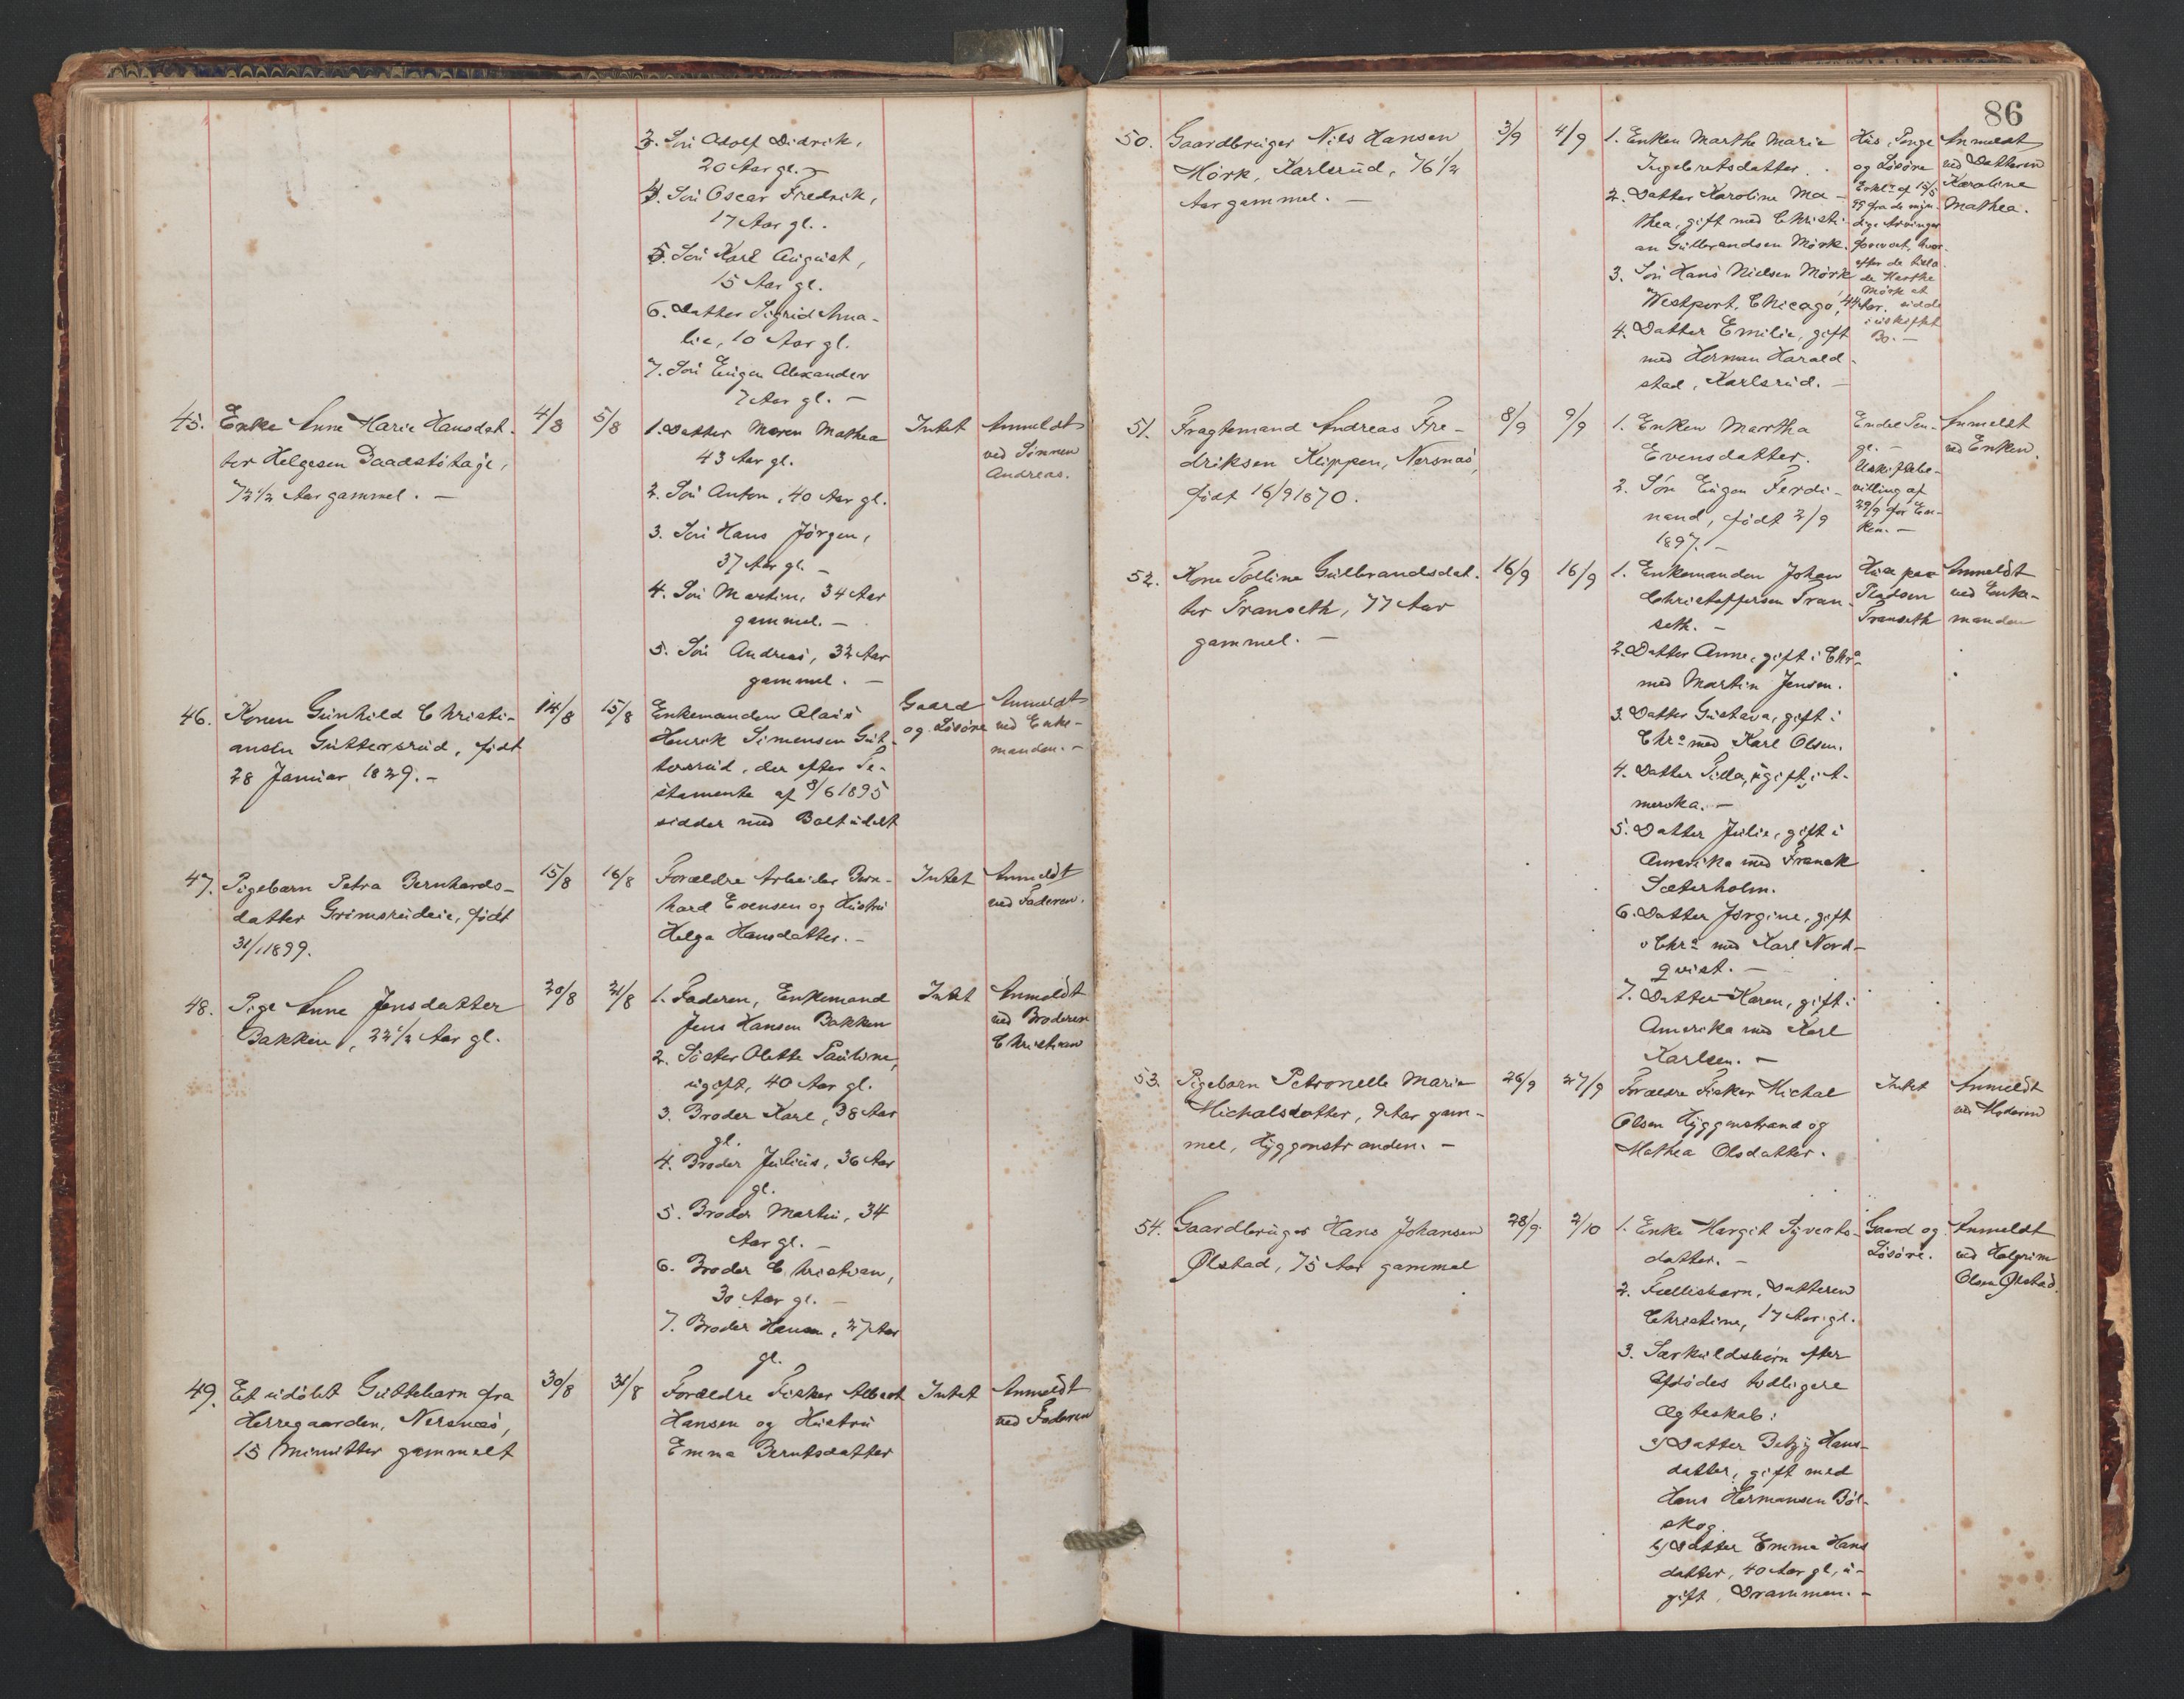 3. Søn Adolf Didrik,
20 Aar gl. —
4. Søn Oscar Fredrik,
17 Aar gl.
5. Søn Karl August,
15 Aar gl.
6. Datter Sigrid Ama-
lie, 10 Aar gl.
7. Søn Eugen Alexander
7 Aar gl. —
45. Enke Anne Marie Hansdat-
ter Helgesen
72 1/2 Aar gammel. —
4/8
5/8
1. Datter Maren Mathea
43 Aar gl.
2. Søn Anton, 40 Aar gl.
3. Søn Hans Jørgen,
37 Aar gl. —
4. Søn Martin, 34 Aar
gammel. —
5. Søn Andreas, 32 Aar
gammel. —
Intet
Anmeldt
ved Sønnen
Andreas.
46. Konen Gunhild Christi-
ansen Guttersrud, født
28 Januar 1829. —
14/8
15/8
Enkemanden Olaus
Henrik Simensen Gut-
tersrud, der efter Te-
stamente af 8/6 1895
sidder med Boet udelt
Gaard
og Løsøre
Anmeldt
ved Enke-
manden. —
47. Pigebarn Petra Bernhards-
datter Grimsrudeie, født
31/1 1899.
15/8
16/8
Forældre Arbeider Bern-
hard Evensen og Hustru
Helga Hansdatter. —
Intet
Anmeldt
ved Faderen.
48. Pige Anne Jensdatter
Bakken, 22 1/2 Aar gl.
20/8
21/8
1. Faderen, Enkemand
Jens Hansen Bakken
2. Søster Olette Pauline,
ugift, 40 Aar gl.
3. Broder Karl, 38 Aar
gl.
4. Broder Julius, 36 Aar
gl.
5. Broder Martin, 34
Aar gl. —
6. Broder Christian,
30 Aar gl. —
7. Broder Hans, 27 Aar
gl.
Intet
Anmeldt
ved Broderen
Christian
49. Et udøbt Guttebarn fra
Herregaarden, Nersnæs,
15 Minutter gammelt
30/8
31/8
Forældre Fisker Albert
Hansen og Hustru
Emma Berntsdatter
Intet
Anmeldt
ved Faderen
86
50. Gaardbruger Nils Hansen
Mørk, Karlsrud, 76 1/2
Aar gammel. —
3/9
4/9
1. Enken Marthe Marie
Ingebretsdatter.
2. Datter Karoline Ma-
thea, gift med Christi-
an Gulbrandsen Mørk.
3. Søn Hans Nielsen Mørk
Westport, Chicago, 44 Aar.
4. Datter Emilie, gift
med Herman Harald-
stad, Karlsrud. —
Hus, Penge
og Løsøre
Erkl. af 15/5
99 fra de myn-
dige Arvinger
hvor-
efter de tilla-
de Marthe
Mørk at
sidde
i uskiftet
Bo. —
Anmeldt
ved Datteren
Karoline
Mathea.
51. Fragtemand Andreas Fre-
driksen Klippen, Nersnæs,
født 16/9 1870.
8/9
9/9
1. Enken Martha
Evensdatter.
2. Søn Eugen Ferdi-
nand, født 2/9
1897. —
Endel Pen-
ge. —
Uskiftebe-
villing af
29/9 for En-
ken. —
Anmeldt
ved Enken.
52. Kone Golline Gulbrandsdat-
ter Transeth, 77 Aar
gammel. —
16/9
16/9
1. Enkemanden Johan
Christoffersen Tran-
seth. —
2. Datter Anne, gift i Chra
med Martin Jensen.
3. Datter Gustava, gift i
Chra med Karl Olsen.
4. Datter Pilla, ugift, i A-
merika. —
5. Datter Julie, gift i
Amerika med Franck
Sæterholm.
6. Datter Jørgine, gift
i Chra med Karl Nord-
qvist. —
7. Datter Karen, gift i
Amerika med Karl
Karlsen. —
Hus paa
Pladsen
Transeth
Anmeldt
ved Enke-
manden
53. Pigebarn Petronelle Marie
Michalsdatter, 9 Aar gam-
mel, Hyggenstranden. —
26/9
27/9
Forældre Fisker Michal
Olsen Hyggenstrand og
Mathea Olsdatter.
Intet
Anmeldt
ved Moderen
54. Gaardbruger Hans Johansen
Ølstad, 75 Aar gammel
28/9
2/10
1. Enke Margit Syverts-
datter. —
2. Fællesbarn, Datteren
Christine, 17 Aar gl.
3. Særkuldsbørn efter
Afdødes tidligere
Ægteskab:
a) Datter Betzy Hans-
datter, gift med
Hans Hermansen Bøl-
skog.
b) Datter Emma Hans
datter, 40 Aar gl., u-
gift, Drammen. —
Gaard og
Løsøre.
Anmeldt
ved Halgrim
Olsen Ølstad.